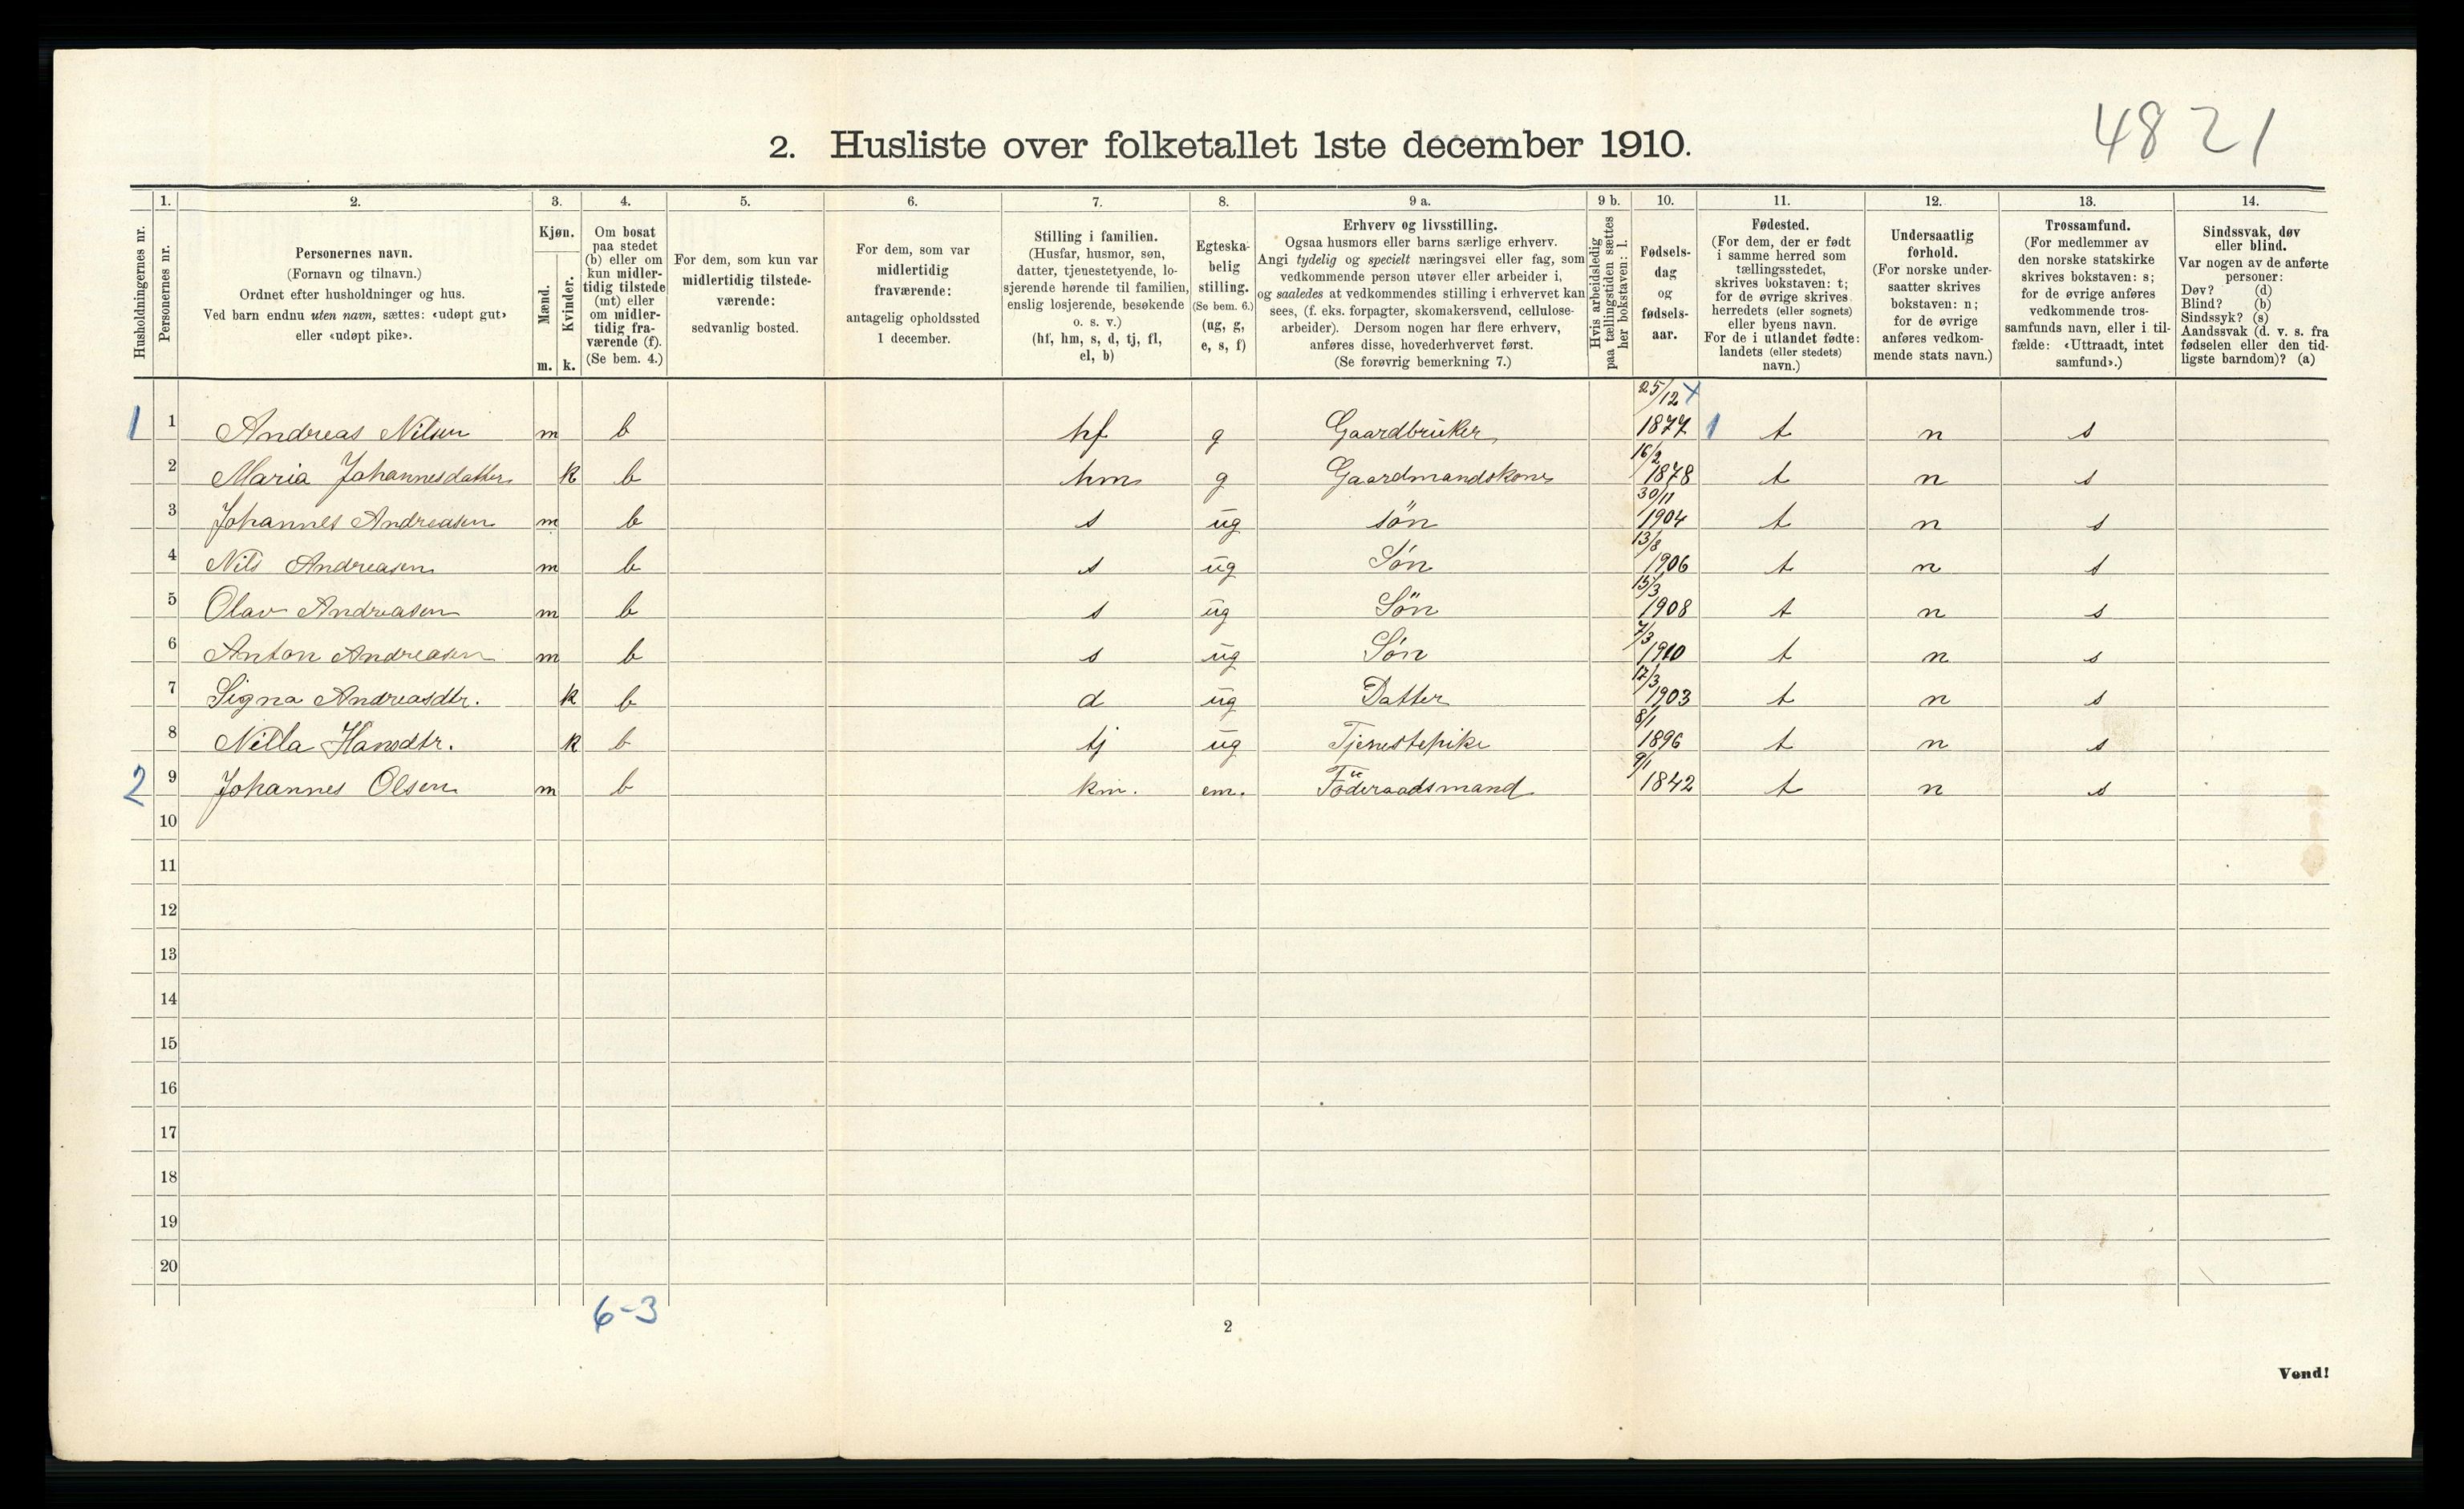 4821
2. Husliste over folketallet 1ste december 1910.
Husholdningernes nr.
1. Personernes nr.
2. Personernes navn.
(Fornavn og tilnavn.)
Ordnet efter husholdninger og hus.
Ved barn endnu uten navn, sættes: «udøpt gut»
eller «udøpt pike».
3. Kjøn.
Mænd. m.
Kvinder. k.
4. Om bosat
paa stedet
(b) eller om
kun midler-
tidig tilstede
(mt) eller
om midler-
tidig fra-
værende (f).
(Se bem. 4.)
5. For dem, som kun var
midlertidig tilstede-
værende:
sedvanlig bosted.
6. For dem, som var
midlertidig
fraværende:
antagelig opholdssted
1 december.
7. Stilling i familien.
(Husfar, husmor, søn,
datter, tjenestetyende, lo-
sjerende hørende til familien,
enslig losjerende, besøkende
o. s. v.)
(hf, hm, s, d, tj, fl,
el, b)
8. Egteska-
belig
stilling.
(Se bem. 6.)
(ug, g,
e, s, f)
9 a. Erhverv og livsstilling.
Ogsaa husmors eller barns særlige erhverv.
Angi tydelig og specielt næringsvei eller fag, som
vedkommende person utøver eller arbeider i,
og saaledes at vedkommendes stilling i erhvervet kan
sees, (f. eks. forpagter, skomakersvend, cellulose-
arbeider). Dersom nogen har flere erhverv,
anføres disse, hovederhvervet først.
(Se forøvrig bemerkning 7.)
9 b. Hvis arbeidsledig
paa tællingstiden sættes
her bokstaven: l.
10. Fødsels-
dag
og
fødsels-
aar.
11. Fødested.
(For dem, der er født
i samme herred som
tællingsstedet,
skrives bokstaven: t;
for de øvrige skrives
herredets (eller sognets)
eller byens navn.
For de i utlandet fødte:
landets (eller stedets)
navn.)
12. Undersaatlig
forhold.
(For norske under-
saatter skrives
bokstaven: n;
for de øvrige
anføres vedkom-
mende stats navn.)
13. Trossamfund.
(For medlemmer av
den norske statskirke
skrives bokstaven: s;
for de øvrige anføres
vedkommende tros-
samfunds navn, eller i til-
fælde: «Uttraadt, intet
samfund».)
14. Sindssvak, døv
eller blind.
Var nogen av de anførte
personer:
Døv? (d)
Blind? (b)
Sindssyk? (s)
Aandssvak (d. v. s. fra
fødselen eller den tid-
ligste barndom)? (a)
1 1 Andreas Nilsen m b hf g Gaardbruker 25/12 1877 1 t n s
2 Maria Johannesdatter k b hm g Gaardmandskone 16/2 1878 t n s
3 Johannes Andreasen m b s ug søn 30/11 1904 t n s
4 Nils Andreasen m b s ug Søn 13/8 1906 t n s
5 Olav Andreasen m b s ug Søn 15/3 1908 t n s
6 Anton Andreasen m b s ug Søn 7/3 1910 t n s
7 Signa Andreasdtr. k b d ug Datter 12/3 1903 t n s
8 Nilla Hansdtr. k b tj ug Tjenestepike 8/1 1896 t n s
2 9 Johannes Olsen m b km. em. Föderaadsmand 9/1 1842 t n s
10
11
12
13
14
15
16
17
18
19
20
6-3
2
Vend!